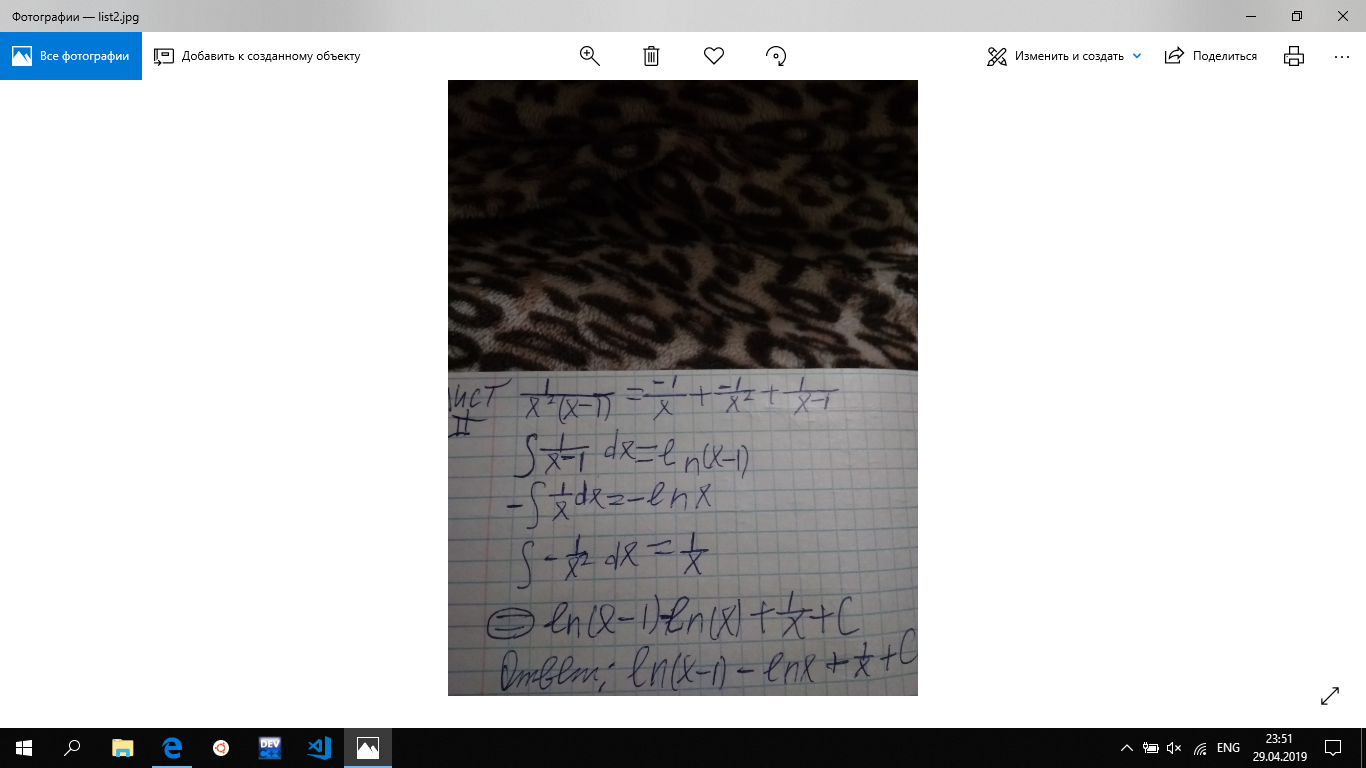 Фотографии — list2.jpg
Все фотографии Добавить к созданному объекту Изменить и создать Поделиться
лист 1/x²(x-1) = -1/x + -1/x² + 1/x-1
II
∫ 1/x-1 dx = ln(x-1)
-∫ 1/x dx = -ln x
∫ -1/x² dx = 1/x
= ln(x-1)-ln(x) + 1/x + C
Ответ: ln(x-1) - lnx + 1/x + C
DEV
C++
ENG
23:51
29.04.2019